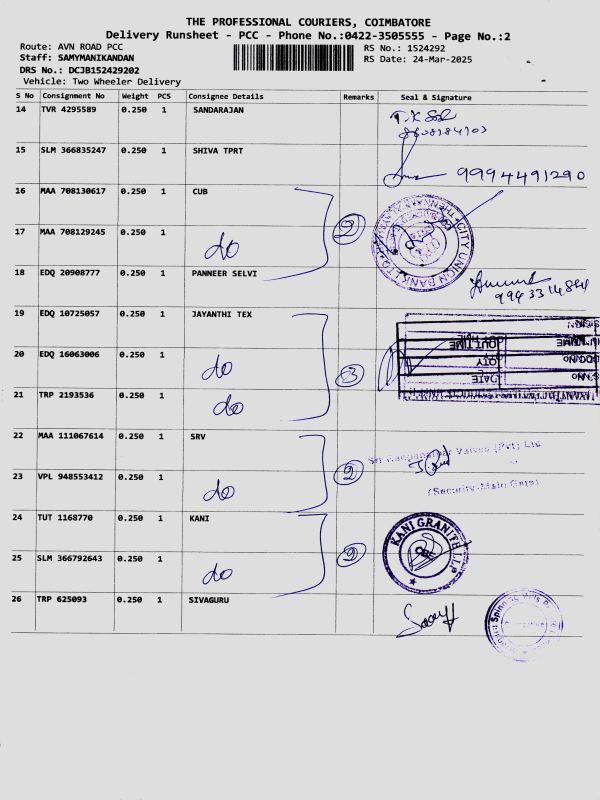 THE PROFESSIONAL COURIERS, COIMBATORE
Delivery Runsheet - PCC - Phone No.:0422-3505555 - Page No.:2
Route: AVN ROAD PCC
RS No.: 1524292
Staff: SAMYMANIKANDAN
RS Date: 24-Mar-2025
DRS No.: DCJB152429202
Vehicle: Two Wheeler Delivery
S No Consignment No Weight PCS Consignee Details Remarks Seal & Signature
14 TVR 4295589 0.250 1 SANDARAJAN
15 SLM 366835247 0.250 1 SHIVA TPRT
9994491290
16 MAA 708130617 0.250 1 CUB
17 MAA 708129245 0.250 1 do 2
CITY UNION BANK LTD
18 EDQ 20908777 0.250 1 PANNEER SELVI
19 EDQ 10725057 0.250 1 JAYANTHI TEX
20 EDQ 16063006 0.250 1 do 3
OUT TIME
QTY
DATE
21 TRP 2193536 0.250 1 do
22 MAA 111067614 0.250 1 SRV
Valves (Pvt) Ltd
23 VPL 948553412 0.250 1 do 2
(Security-Main Gate)
24 TUT 1168770 0.250 1 KANI
KANI GRANITE LLP
25 SLM 366792643 0.250 1 do 2
26 TRP 625093 0.250 1 SIVAGURU